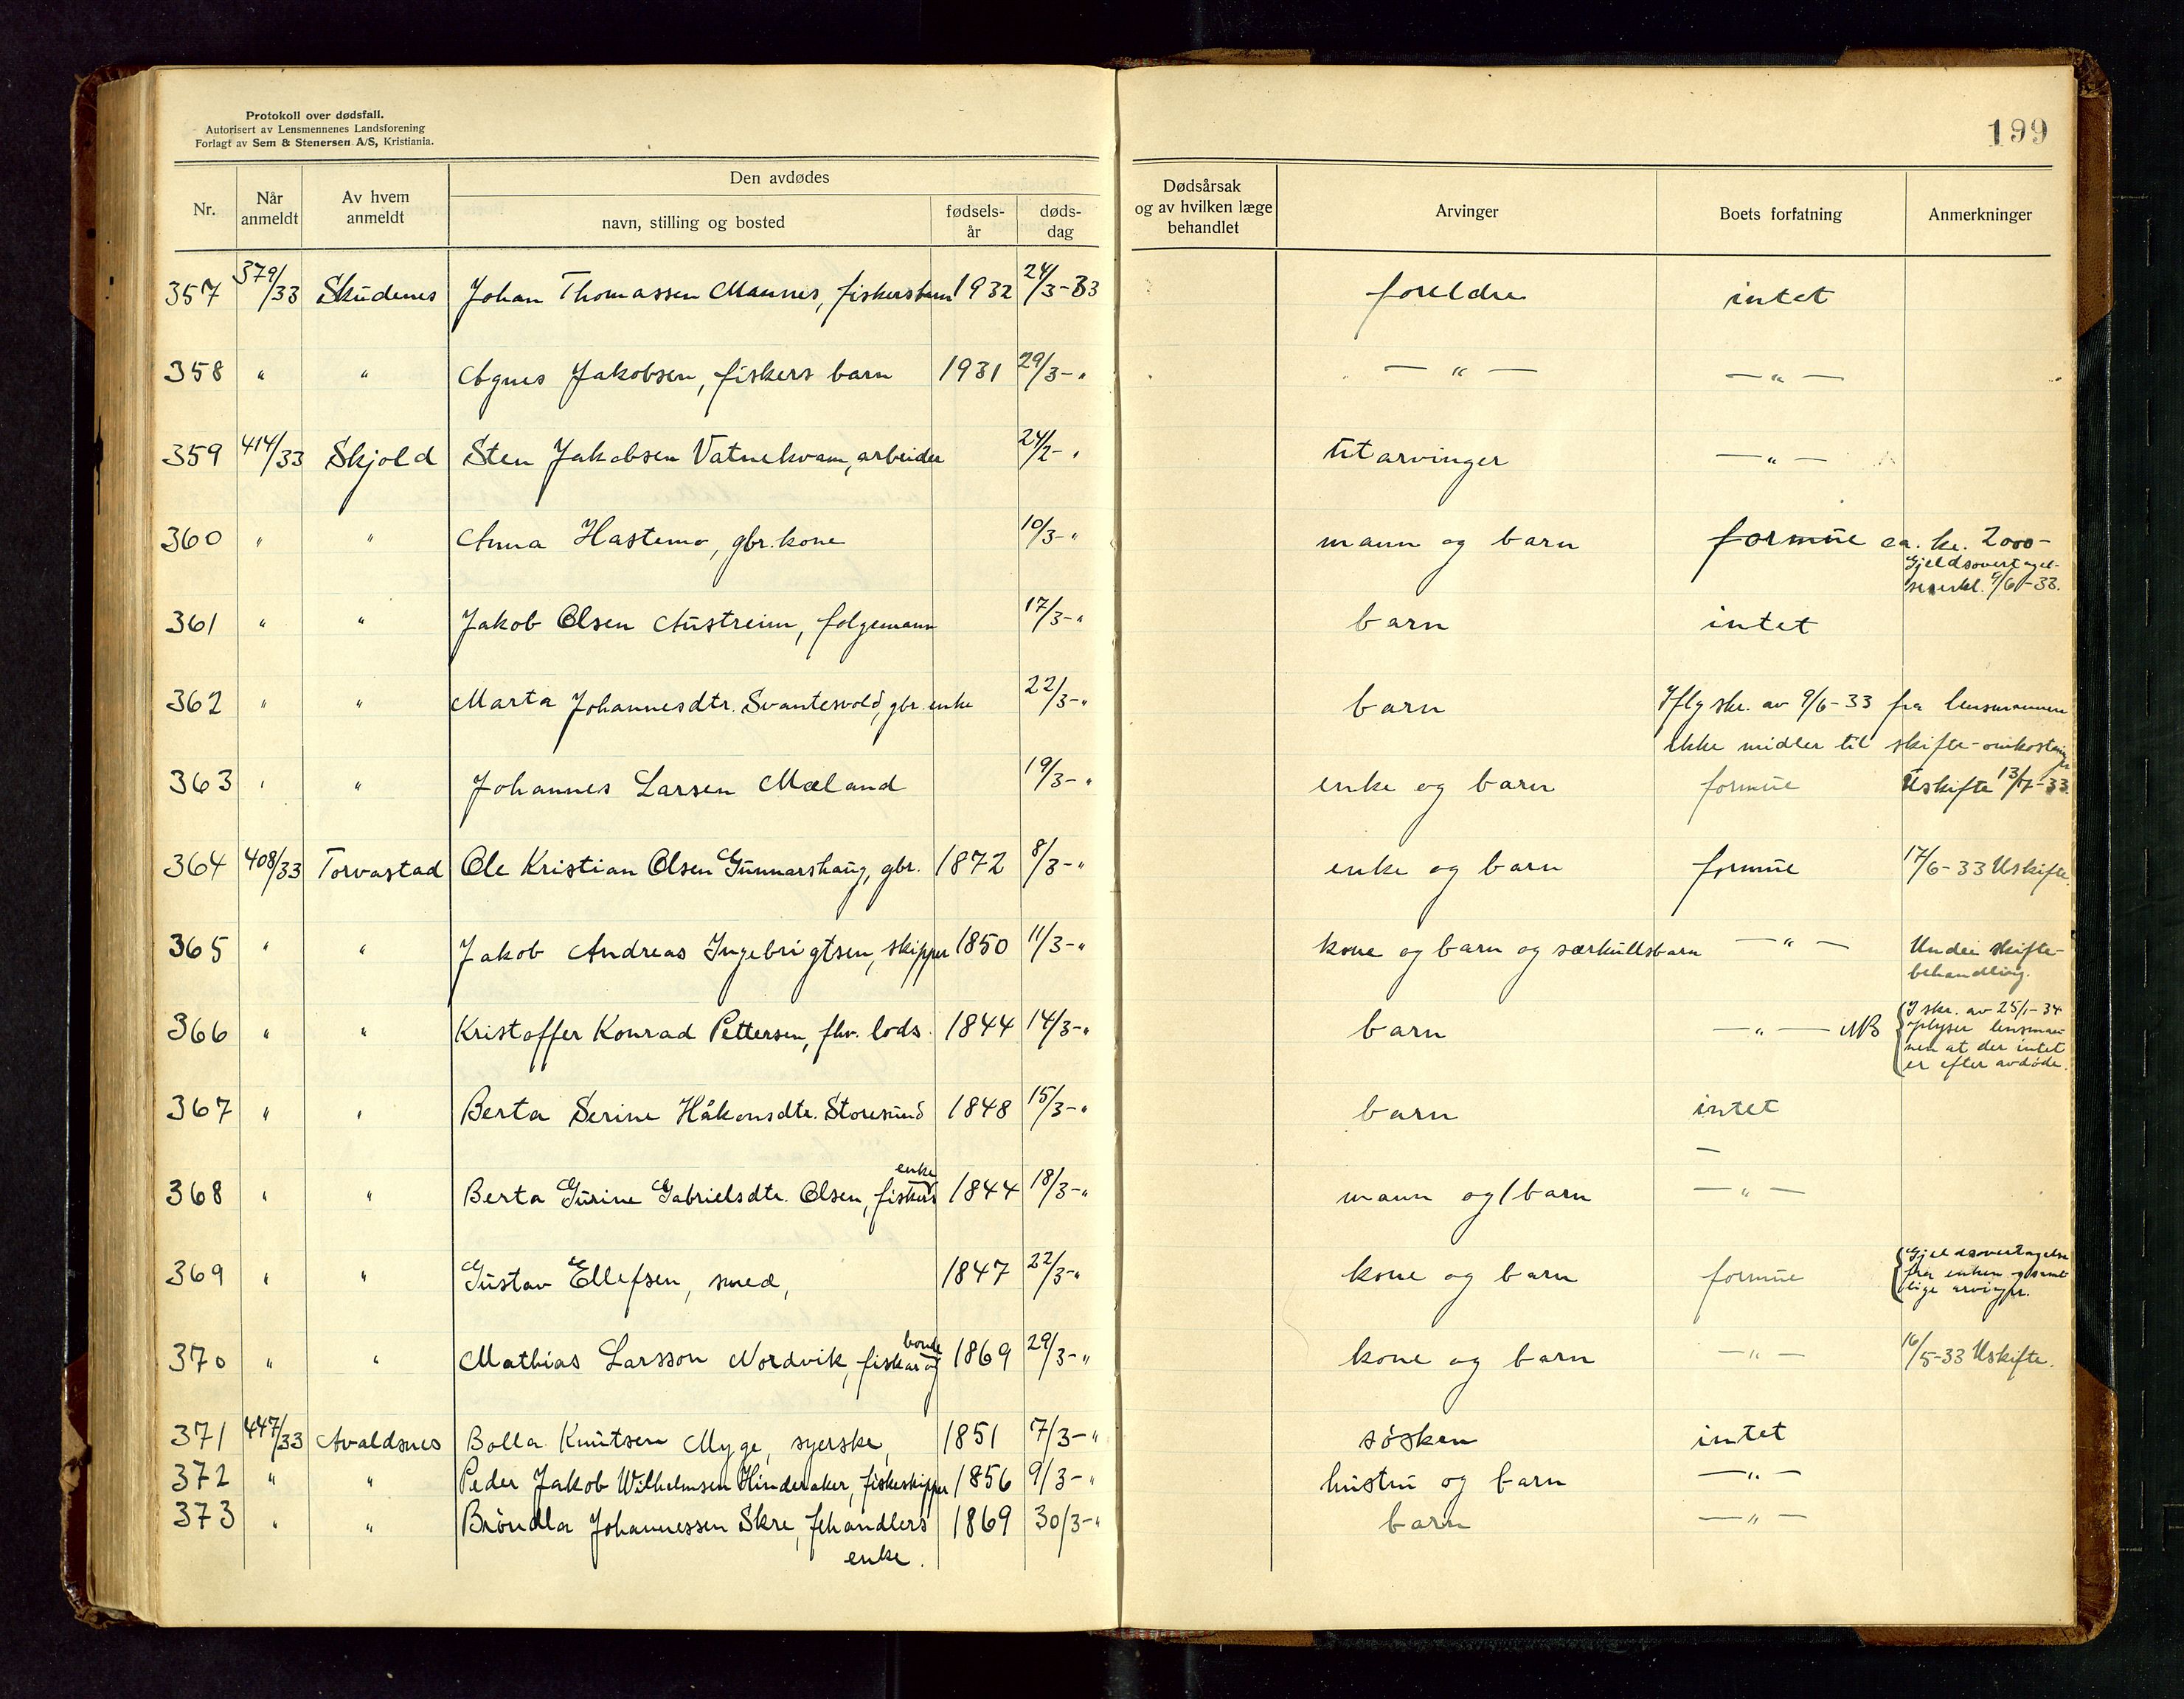 Protokoll over dødsfall.
Autorisert av Lensmennenes Landsforening
Forlagt av Sem & Stenersen A/S, Kristiania.
199
Nr. | Når anmeldt | Av hvem anmeldt | Den avdødes navn, stilling og bosted | fødsels-år | døds-dag | Dødsårsak og av hvilken læge behandlet | Arvinger | Boets forfatning | Anmerkninger
357 379/33 Skudenes Johan Thomassen Mannes, fiskersbarn 1932 24/3-33 foreldre intet
358 " " Agnes Jakobsen, fiskers barn 1931 29/3-" —"— —"—
359 414/33 Skjold Sten Jakobsen Vatnekvam, arbeider 24/2-" utarvinger —"—
360 " " Anna Hastemo, gbr. kone 10/3-" mann og barn formue ca. kr. 2000-
Gjeldsovertagel-
seserkl. 9/6-33.
361 " " Jakob Olsen Austreim, følgemann 17/3-" barn intet
362 " " Marta Johannesdtr. Svantesvold, gbr. enke 22/3-" barn Iflg skr. av 9/6-33 fra lensmannen
ikke midler til skifte-omkostninger
363 " " Johannes Larsen Mæland 19/3-" enke og barn formue Uskifte 13/7-33.
364 408/33 Torvastad Ole Kristian Olsen Gunnarshaug, gbr. 1872 8/3-" enke og barn formue 17/6-33 Uskifte.
365 " " Jakob Andreas Ingebrigtsen, skipper 1850 11/3-" kone og barn og særkullsbarn —"— Under skifte-
behandling.
366 " " Kristoffer Konrad Pettersen, fhv. lods. 1844 14/3-" barn —"— NB I skr. av 25/1-34
oplyser lensman-
nen at der intet
er efter avdøde.
367 " " Berta Serine Håkonsdtr. Storesund 1848 15/3-" barn intet
—
368 " " Berta Gurine Gabrielsdtr. Olsen, fiskers enke 1844 18/3-" mann og 1 barn —"—
369 " " Gustav Ellefsen, smed, 1847 22/3-" kone og barn formue Gjeldsovertagelse
fra enken og samt-
lige arvinger.
370 " " Mathias Larsson Nordvik, fiskar og bonde 1869 29/3-" kone og barn —"— 16/5-33 Uskifte.
371 447/33 Avaldsnes Bolla Knutsen Myge, syerske, 1851 7/3-" søsken intet
372 " " Peder Jakob Wilhelmsen Hinderaker, fiskeskipper 1856 9/3-" hustru og barn —"—
373 " " Brøndla Johannessen Skre, fehandlers 1869 30/3-" barn —"—
enke.